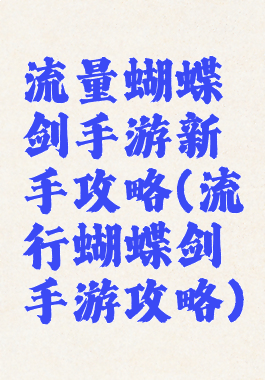 流量蝴蝶
剑手游新
手攻略(流
行蝴蝶剑
手游攻略)